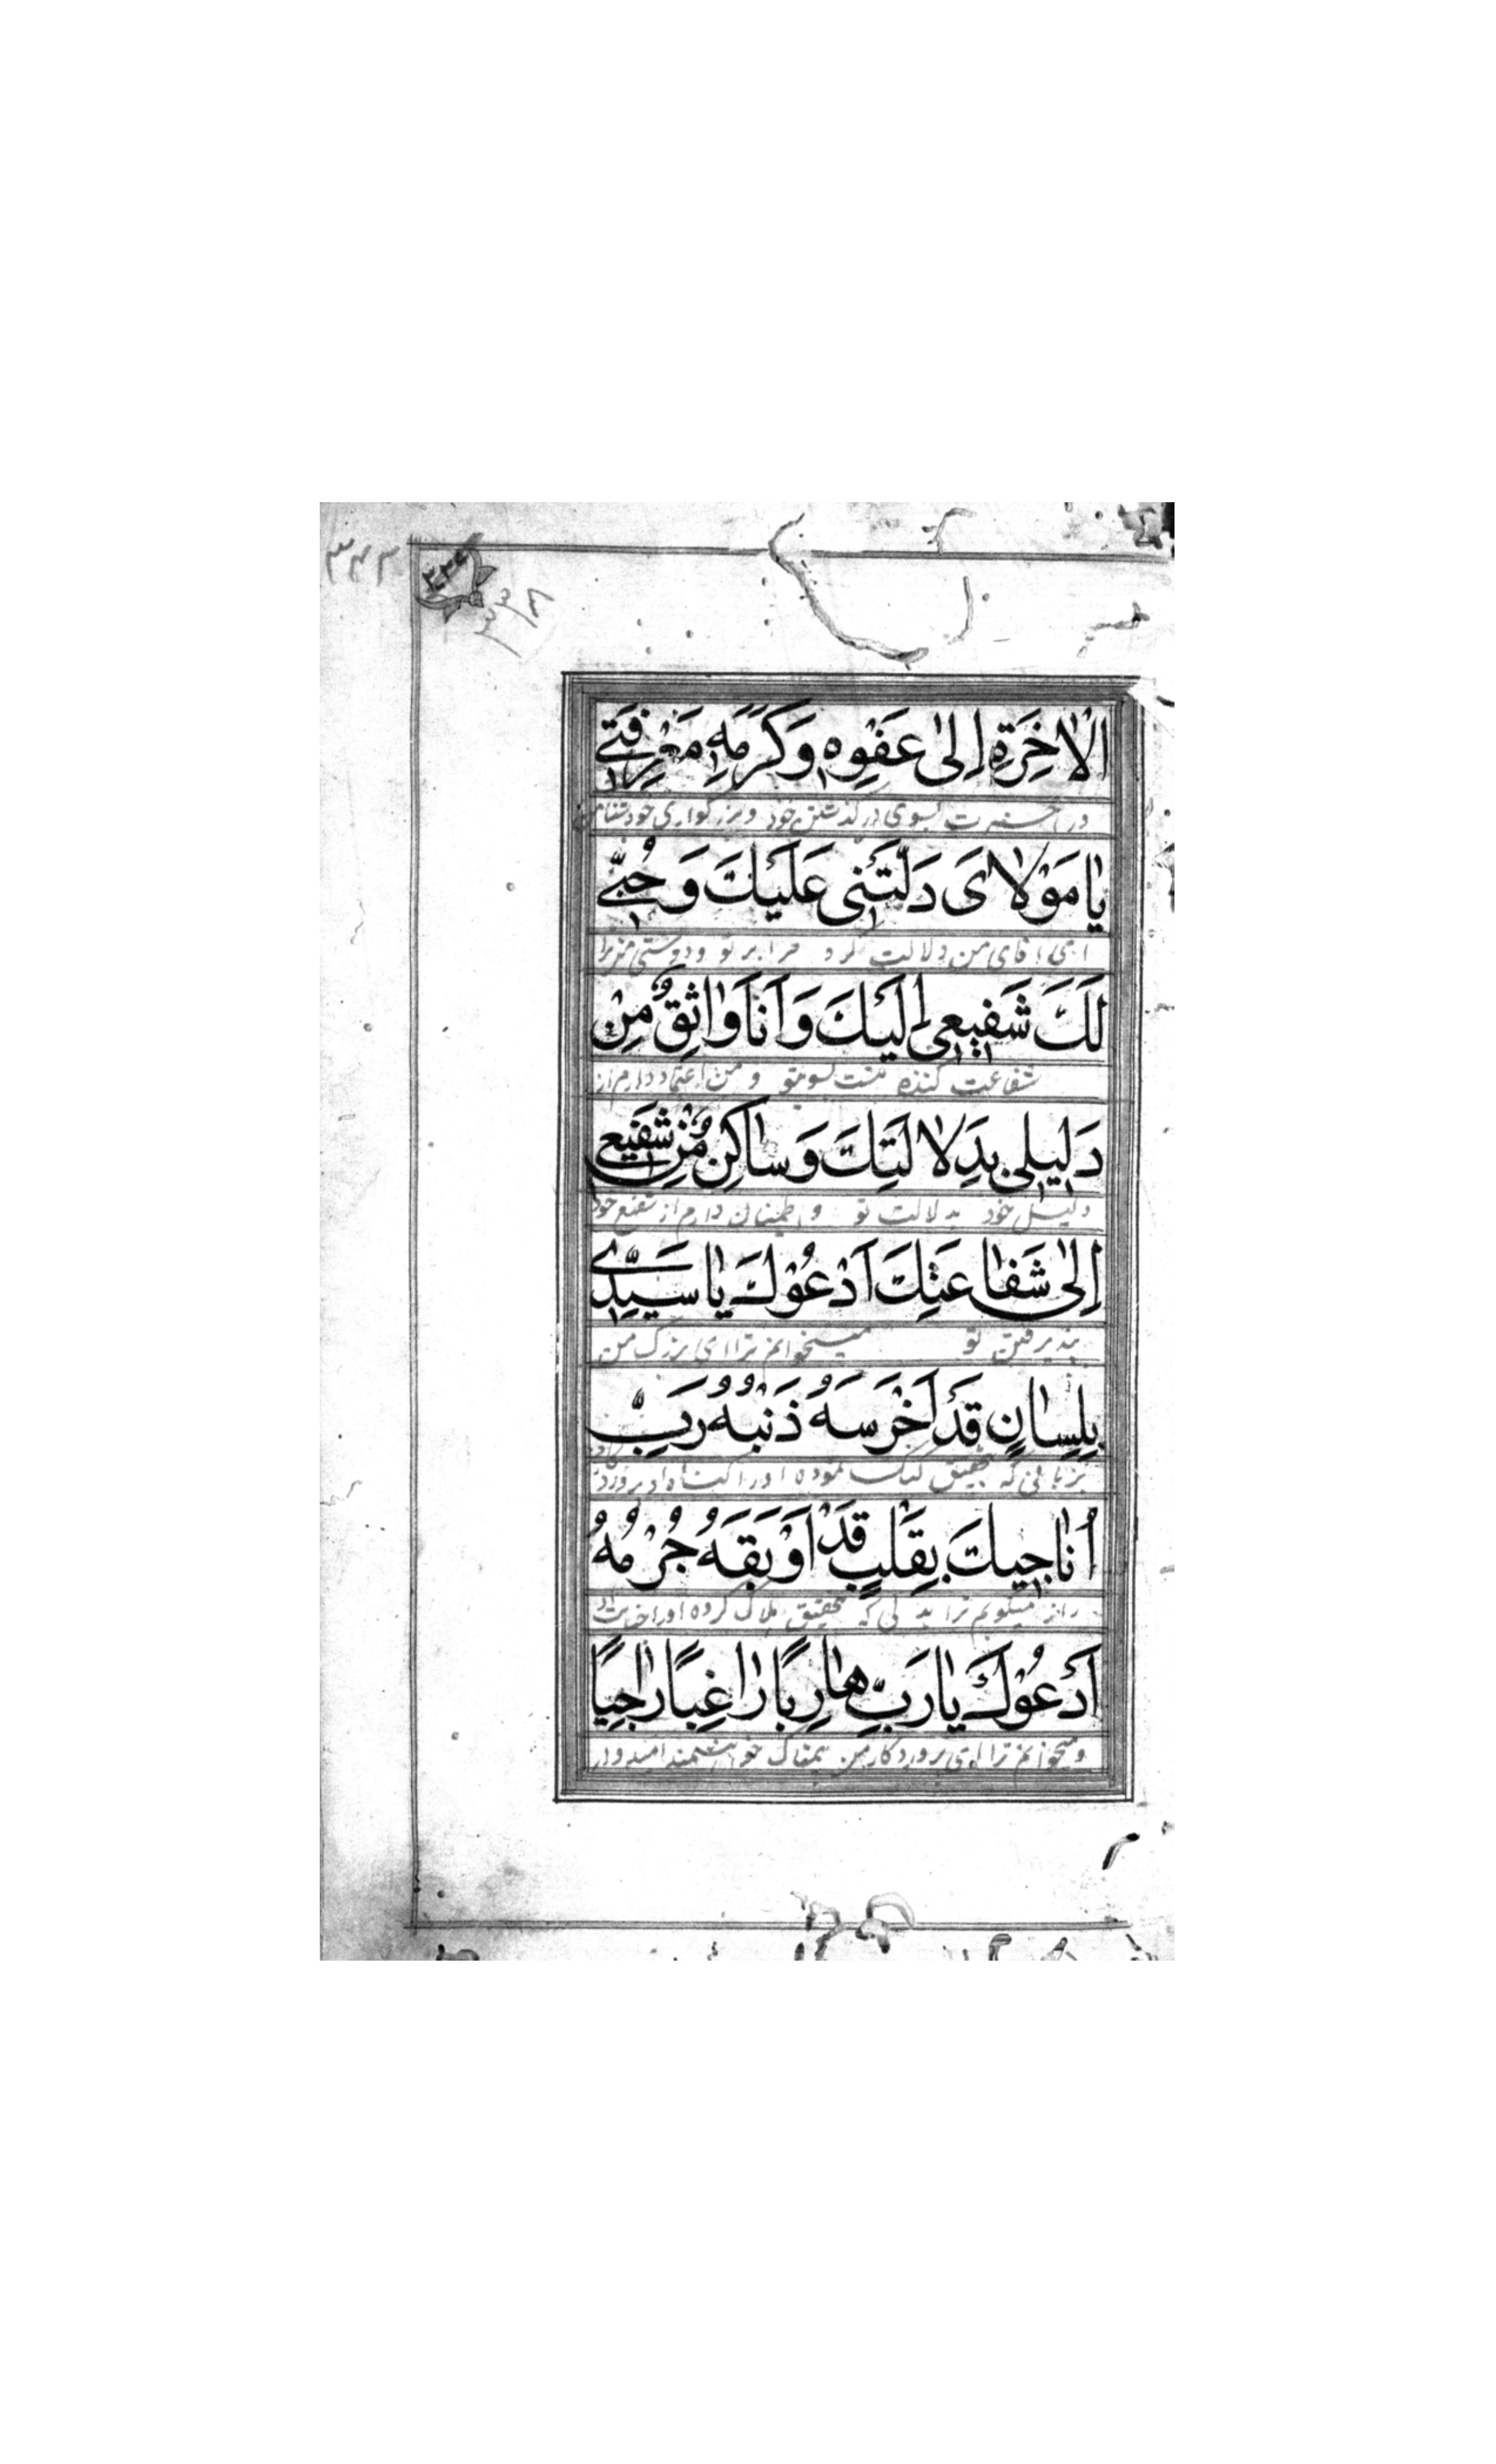 ۳۴۳
۳۳۶
۳۳۸
الْاٰخِرَةِ اِلىٰ عَفْوِهِ وَكَرَمِهِ مَعْرِفَتِي
در آخرت بسوی درگذشتن خود و بزرگواری خود شناس من
يٰا مَوْلاٰىَ دَلَّتْنِى عَلَيْكَ وَحُبِّي
ای آقای من دلالت کرد مرا بر تو و دوستی من ترا
لَكَ شَفِيعِى اِلَيْكَ وَاَنَا وٰاثِقٌ مِنْ
شفاعت کننده منست بسوی تو و من اعتماد دارم از
دَلِيلِى بِدَلاٰلَتِكَ وَسٰاكِنٌ مِنْ شَفِيعِي
دلیل خود بدلالت تو و اطمینان دارم از شفیع خود
اِلىٰ شَفٰاعَتِكَ اَدْعُوْكَ يٰا سَيِّدِي
پذیرفتن تو میخوانم ترا ای بزرگ من
بِلِسٰانٍ قَدْ اَخْرَسَهُ ذَنْبُهُ رَبِّ
بزبانی که بتحقیق گنگ نموده او را گناه او پروردگار
اُنٰاجِيكَ بِقَلْبٍ قَدْ اَوْبَقَهُ جُرْمُهُ
راز میگویم ترا بدلی که بتحقیق هلاک کرده او را
اَدْعُوْكَ يٰا رَبِّ هٰارِبًا رٰاغِبًا رٰاجِيًا
و میخوانم ترا ای پروردگار من خواهشمند امیدوار